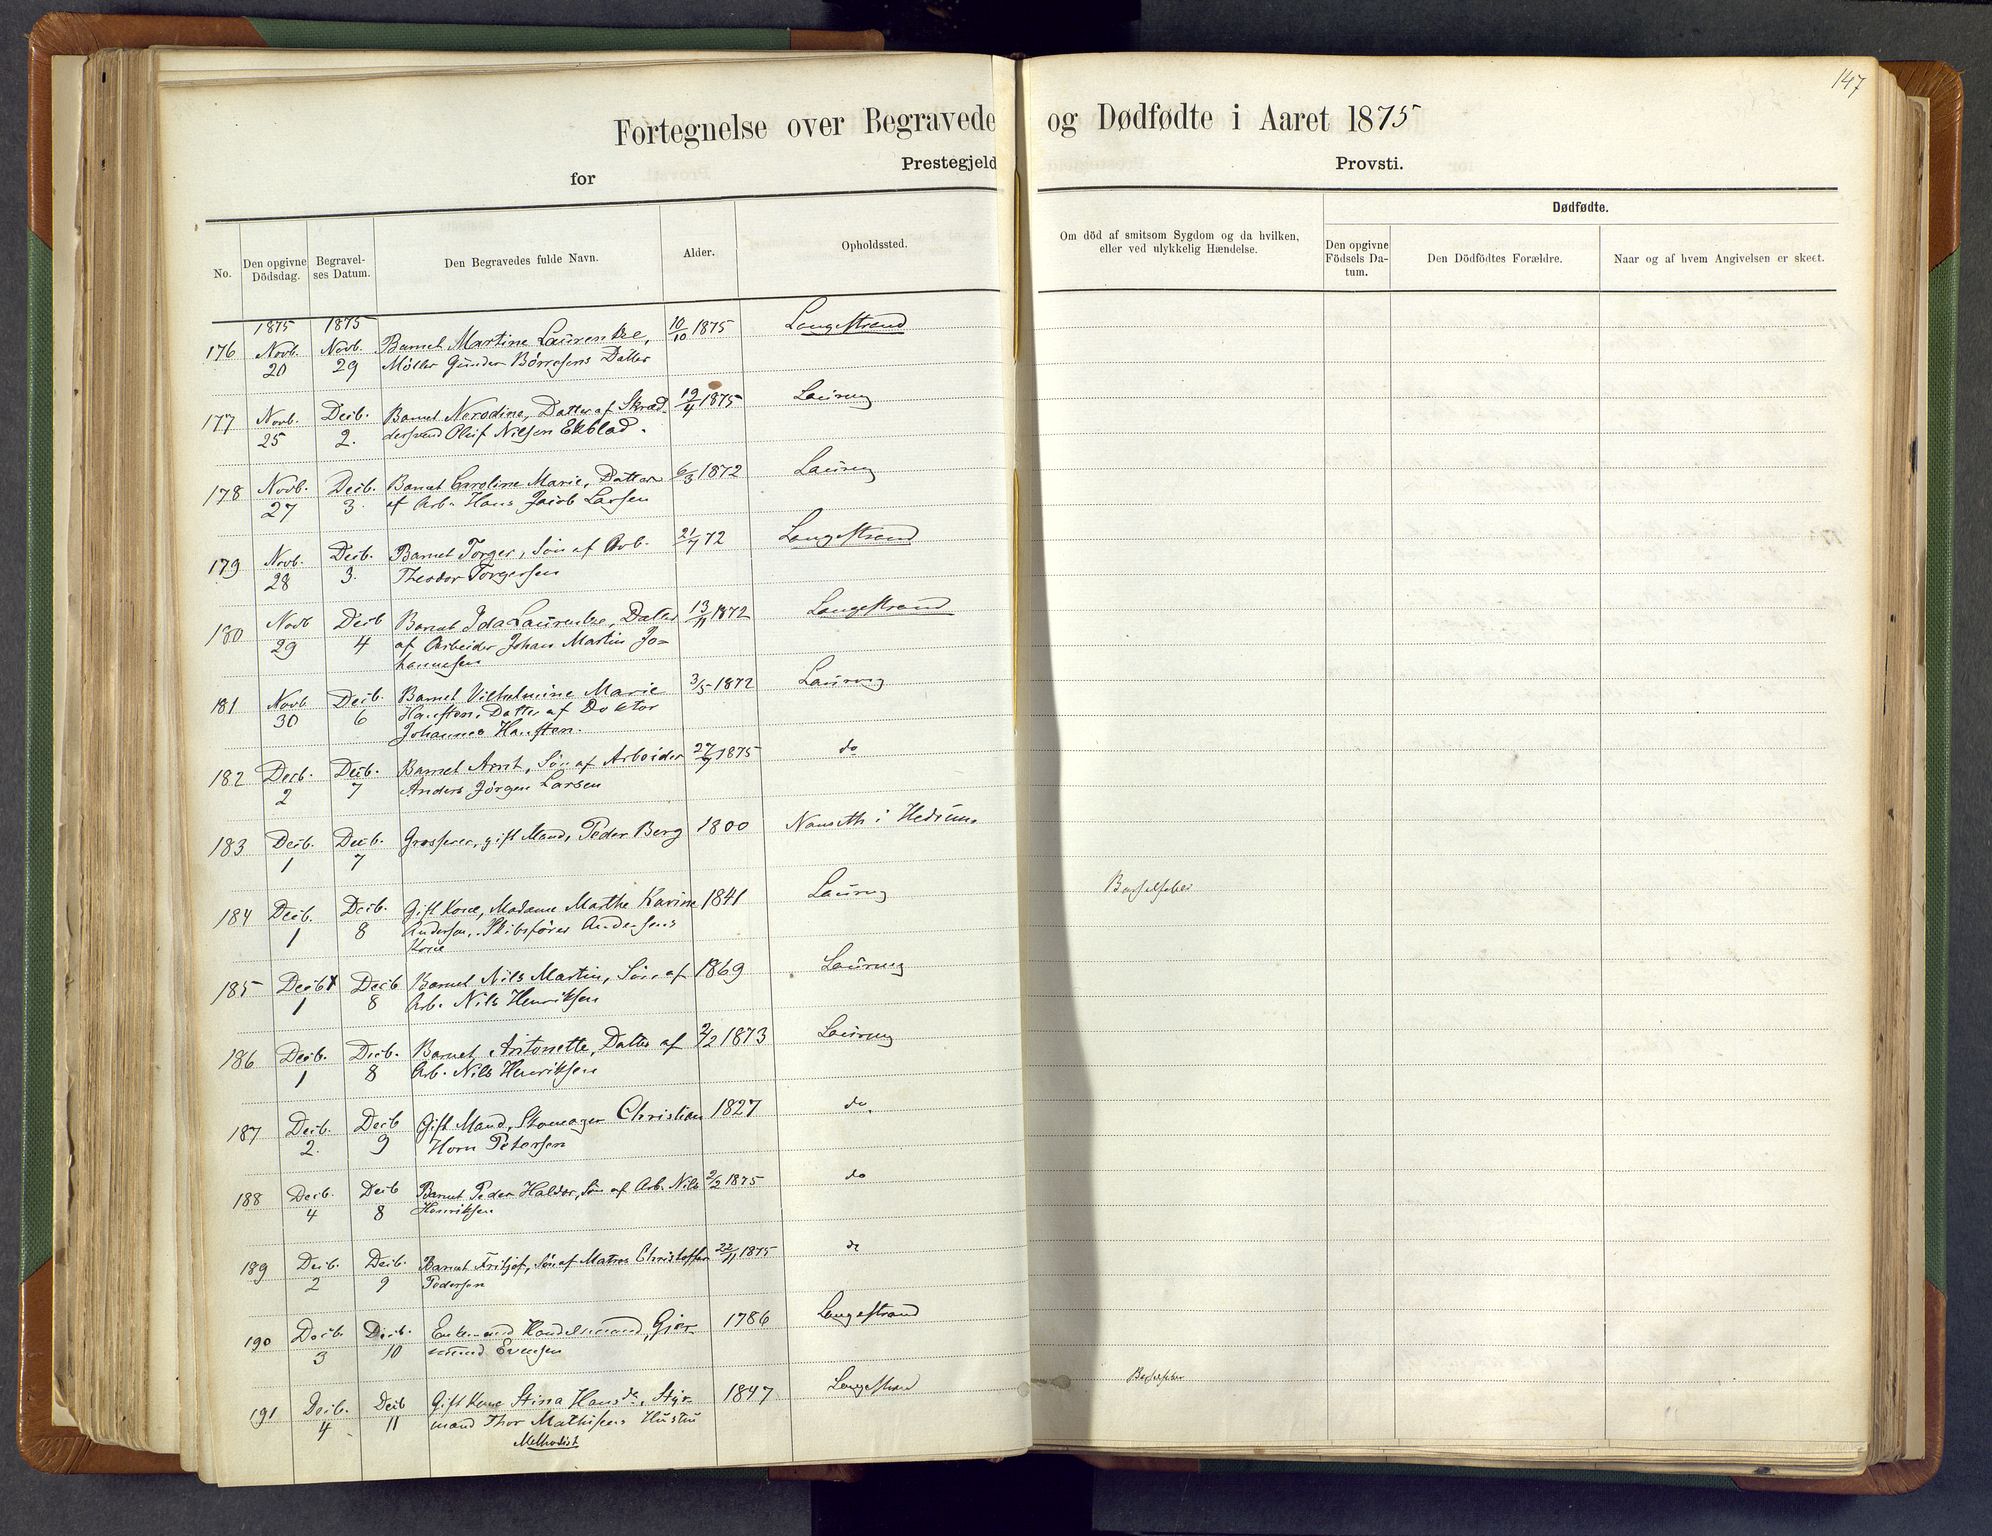 147
Fortegnelse over Begravede og Dødfødte i Aaret 1875
for Prestegjeld Provsti.
No.
Den opgivne Dödsdag.
Begravel-
ses Datum.
Den Begravedes fulde Navn.
Alder.
Opholdssted.
Om död af smitsom Sygdom og da hvilken,
eller ved ulykkelig Hændelse.
Dødfødte.
Den opgivne
Födsels Da-
tum.
Den Dödfödtes Forældre.
Naar og af hvem Angivelsen er skeet.
1875 1875
176 Novb. 20 Novb. 29 Barnet Martine Laurentze, 10/10 1875 Langestrand
Møller Gunder Börresens Datter
177 Novb. 25 Decb. 2. Barnet Nerodine, Datter af Skræd- 19/4 1875 Laurvig
dersvend Oluf Nilsen Ekblad.
178 Novb. 27 Decb. 3. Barnet Caroline Marie, Datter 6/3 1872 Laurvig
af Arb. Hans Jacob Larsen
179 Novb. 28 Decb. 3. Barnet Torger, Søn af Arb. 21/7 72 Langestrand
Theodor Torgersen
180 Novb 29 Decb 4 Barnet Ida Laurentze, Datter 13/11 1872 Langestrand
af Arbeider Johan Martin Jo-
hannesen
181 Novb 30 Decb. 6 Barnet Vilhelmine Marie 3/5 1872 Laurvig
Hansteen, Datter af Doktor
Johannes Hansteen.
182 Decb. 2 Decb. 7 Barnet Arnt, Søn af Arbeider 1875 do
Anders Jörgen Larsen
183 Decb. 1 Decb. 7 Grosserer, gift Mand, Peder Berg 1800 Nanseth i Hedrum
184 Decb. 1 Decb. 8 Gift Kone, Madame Marthe Karine 1841 Laurvig Barselseber
Andersen, Skibsfører Andersens
Kone
185 Decb 1 Decb 8 Barnet Nils Martin, Søn af 1869 Laurvig
Arb. Nils Henriksen
186 Decb. 1 Decb. 8 Barnet Antonette, Datter af 2/2 1873 Laurvig
Arb. Nils Henriksen
187 Decb. 2. Decb 9 Gift Mand, Skomager Christian 1827 do.
Horn Petersen
188 Decb. 4 Decb 8 Barnet Peder Haldor, Søn af Arb. Nils 2/2 1875 do
Henriksen
189 Decb. 2 Decb. 9 Barnet Fritjof, Søn af Matros Christoffer 22/11 1875 do
Pedersen
190 Decb. 3 Decb. 10 Enkemand Handelsmand, Gjer- 1786 Langestrand
mund Evensen
191 Decb. 4 Decb 11 Gift Kone Stina Hansdr, Styr- 1847 Langestrand Barselseber
mand Thor Mathisens Hustru
Methodist